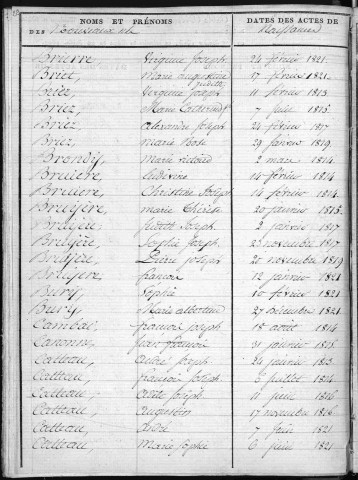 NOMS ET PRÉNOMS
DATES DES ACTES DE
DES
Naissances
Brierre, Virginie Joseph 24 février 1821.
Briez, Marie augustine Judith, 17 février 1821.
Briez, Virginie Joseph 11 février 1813
Briez, Marie Catherine Jh 7 juin 1815.
Briez, alexandre Joseph 24 février 1817
Briez, marie Rose 29 janvier 1819.
Brondy, marie victoire 2 mars 1814
Bruiere, Ludivine 14 février 1814
Bruiere, Christine Joseph 14 février 1814.
Bruyère, marie Thérèse 20 janvier 1815.
Bruyère, Judith Joseph 2 janvier 1817
Bruyère, Sophie Joseph 23 novembre 1817
Bruyère, Pierre Joseph 21 novembre 1819
Bruyere, francois 12 janvier 1821
Bury, Sophie 10 février 1821
Bury, Marie albertine 27 décembre 1821
Cambai, francois Joseph 18 août 1814
Canonne, Jean francois 31 janvier 1813
Catteau, andré Joseph 24 janvier 1813
Catteau, francois Joseph 6 juillet 1814
Catteau, Joseph 11 juin 1816
Catteau, augustin 17 novembre 1816
Catteau, andré 7 juin 1821
Catteau, Marie Sophie 6 juin 1821